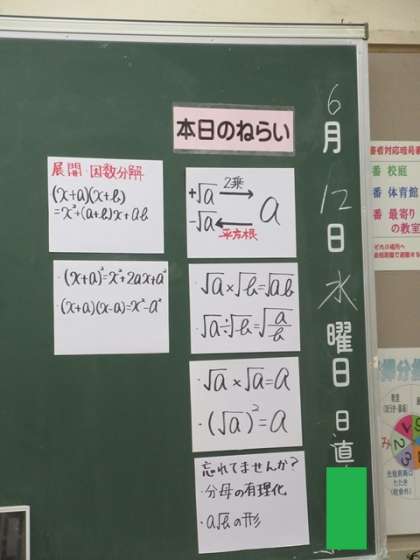 本日のねらい
6月12日水曜日 日直
展開・因数分解
(x+a)(x+b)
=x²+(a+b)x+ab
・(x+a)²=x²+2ax+a²
・(x+a)(x-a)=x²-a²
+√a 2乗→ a
-√a ←平方根
・√a×√b=√ab
・√a÷√b=√a/b
・√a×√a=a
・(√a)²=a
忘れてませんか?
・分母の有理化
・a√bの形
審者対応暗号番
番 校庭
番 体育館
番 最寄り
の教室